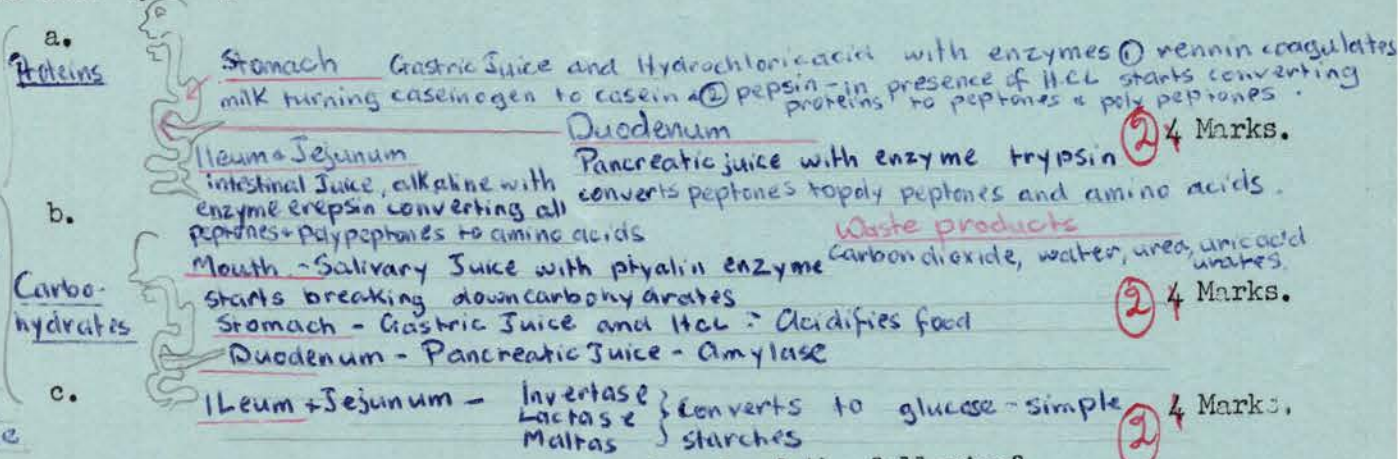 a.
Proteins
Stomach Gastric Juice and Hydrochloric acid with enzymes ① rennin coagulates
milk turning caseinogen to casein & ② pepsin - in presence of H.CL starts converting
proteins to peptones & poly peptones.
Duodenum
② 4 Marks.
Ileum & Jejunum
Pancreatic juice with enzyme trypsin
intestinal Juice, alkaline with
converts peptones to poly peptones and amino acids.
enzyme erepsin converting all
b.
peptones + polypeptones to amino acids
Waste products
Carbon dioxide, water, urea, uric acid
urates.
Mouth - Salivary Juice with ptyalin enzyme
Carbo-
hydrates
starts breaking down carbohydrates
② 4 Marks.
Stomach - Gastric Juice and HCL : Acidifies food
Duodenum - Pancreatic Juice - Amylase
c.
ILeum + Jejunum - Invertase
Lactase
Maltas
} Converts to glucose - simple
starches
② 4 Marks.
e